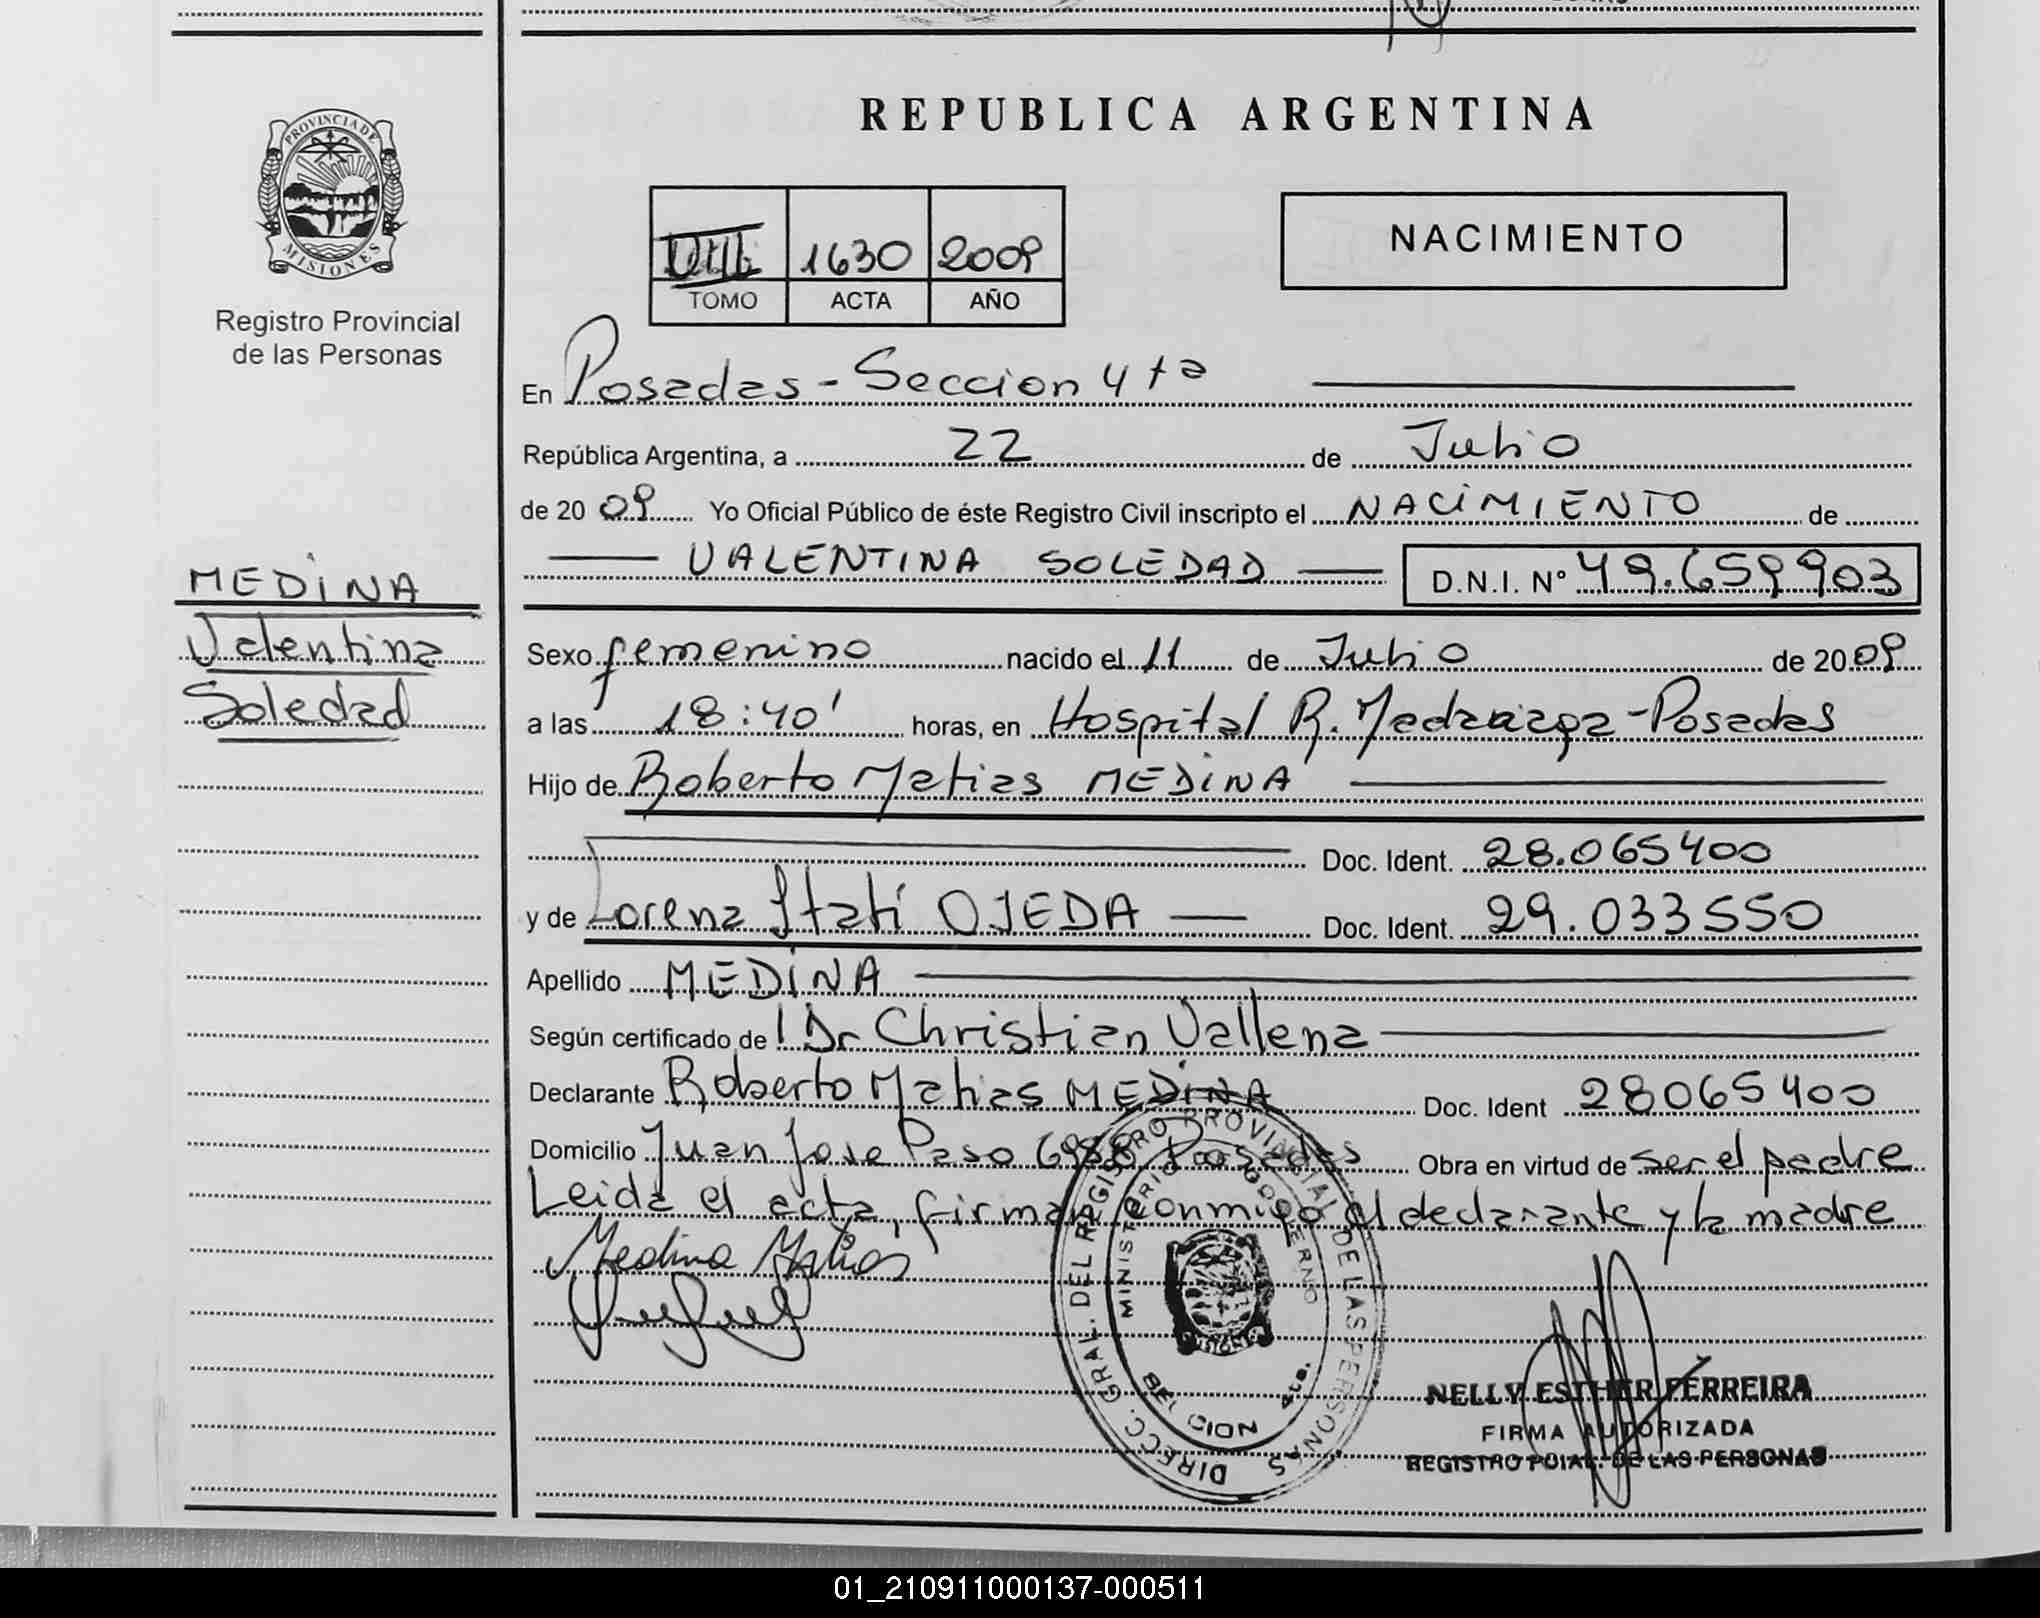 REPUBLICA ARGENTINA
PROVINCIA DE
MISIONES
Registro Provincial
de las Personas
VIII 1630 2009
TOMO ACTA AÑO
NACIMIENTO
En Posadas - Seccion 4ta
República Argentina, a 22 de Julio
de 2009 Yo Oficial Público de éste Registro Civil inscripto el NACIMIENTO de
VALENTINA SOLEDAD D.N.I. Nº 49.659903
MEDINA
Valentina
Soledad
Sexo femenino nacido el 11 de Julio de 2009
a las 18:40' horas, en Hospital R. Madariaga - Posadas
Hijo de Roberto Matias MEDINA
Doc. Ident. 28.065400
y de Lorena Itatí OJEDA Doc. Ident. 29.033550
Apellido MEDINA
Según certificado de Dr Christian Vallena
Declarante Roberto Matias MEDINA Doc. Ident 28065400
Domicilio Juan Jose Paso Posadas Obra en virtud de ser el padre
Leida el acta, firman conmigo el declarante y la madre
Medina Matias
DIRECC. GRAL. DEL REGISTRO PROVINCIAL DE LAS PERSONAS
MINISTERIO GOBIERNO
4ta.
MISIONES
NELLY ESTHER FERREIRA
FIRMA AUTORIZADA
REGISTRO PCIAL. DE LAS PERSONAS
01_210911000137-000511